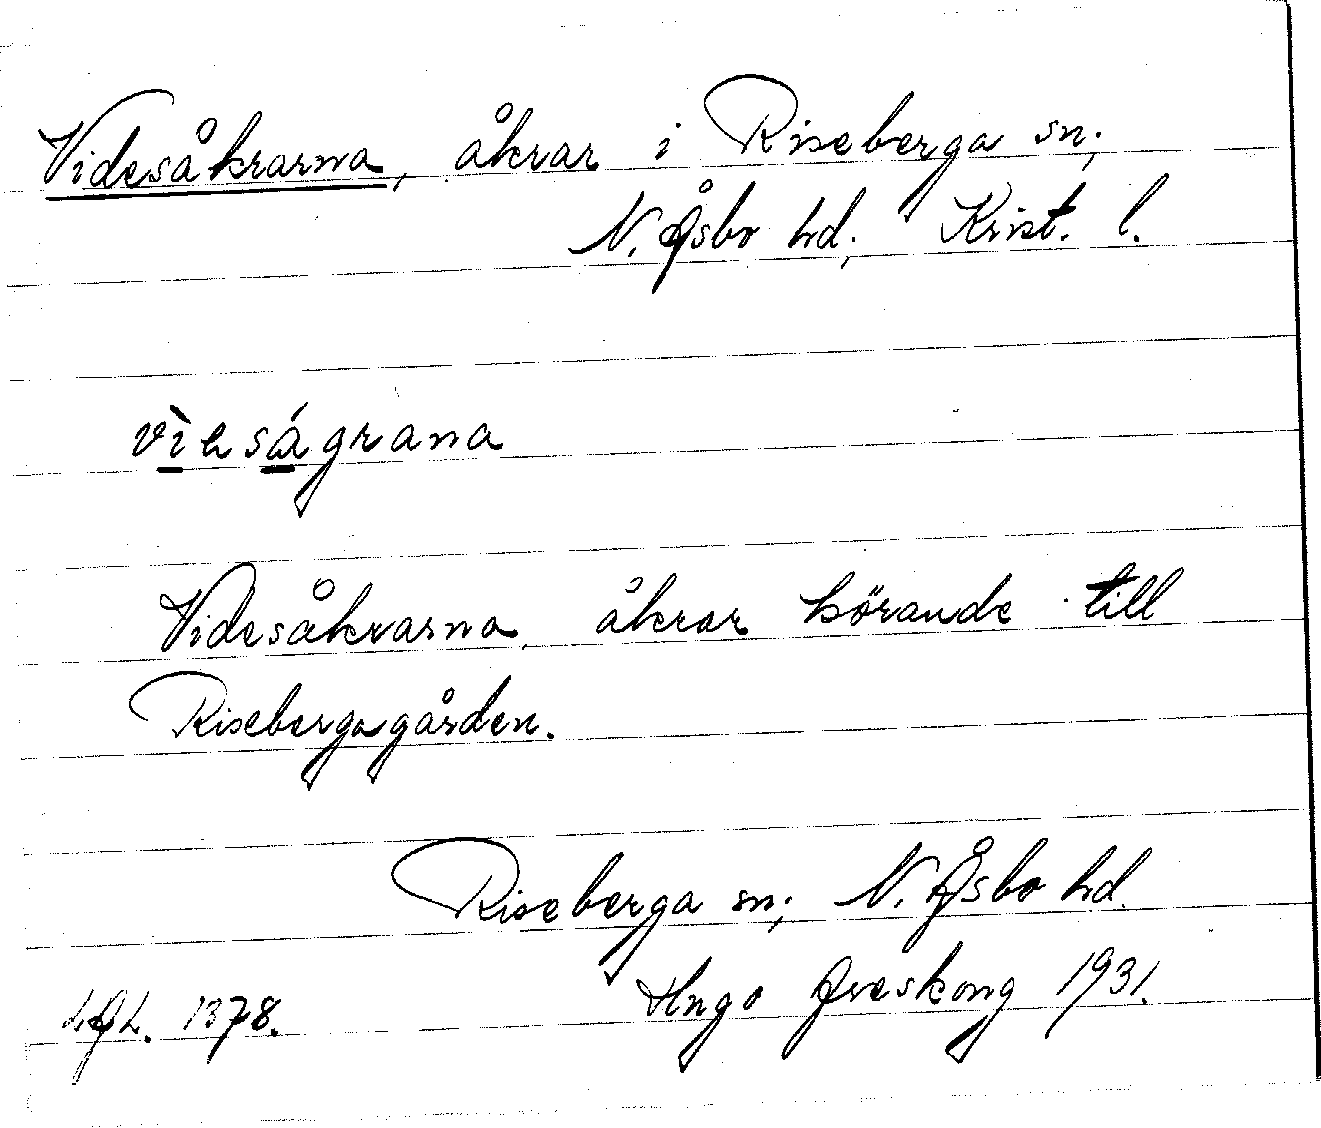 Videsåkrarna, åkrar i Riseberga sn;
N. Åsbo hd; Krist. l.
vìeságrana
Videsåkrarna, åkrar hörande till
Risebergagården.
Riseberga sn; N. Åsbo hd.
LAL. 1378. Ingo Areskoug 1931.